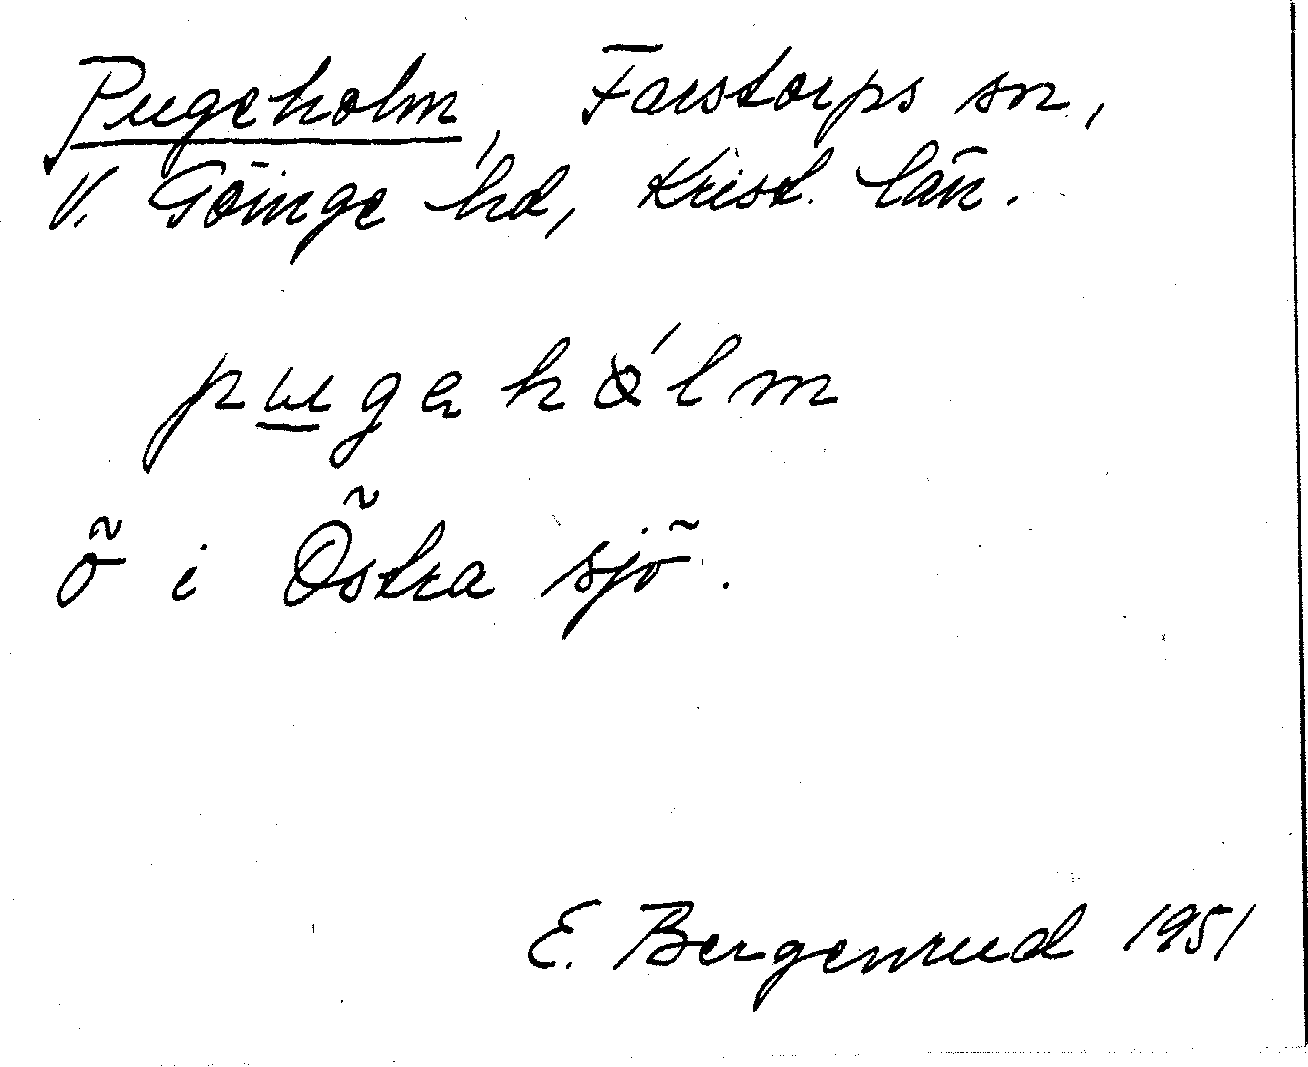 Pugeholm, Farstorps sn,
V. Göinge hd, Krist. län.
pu̲gəhólm
ö i Östra sjö.
E. Bergenrud 1951